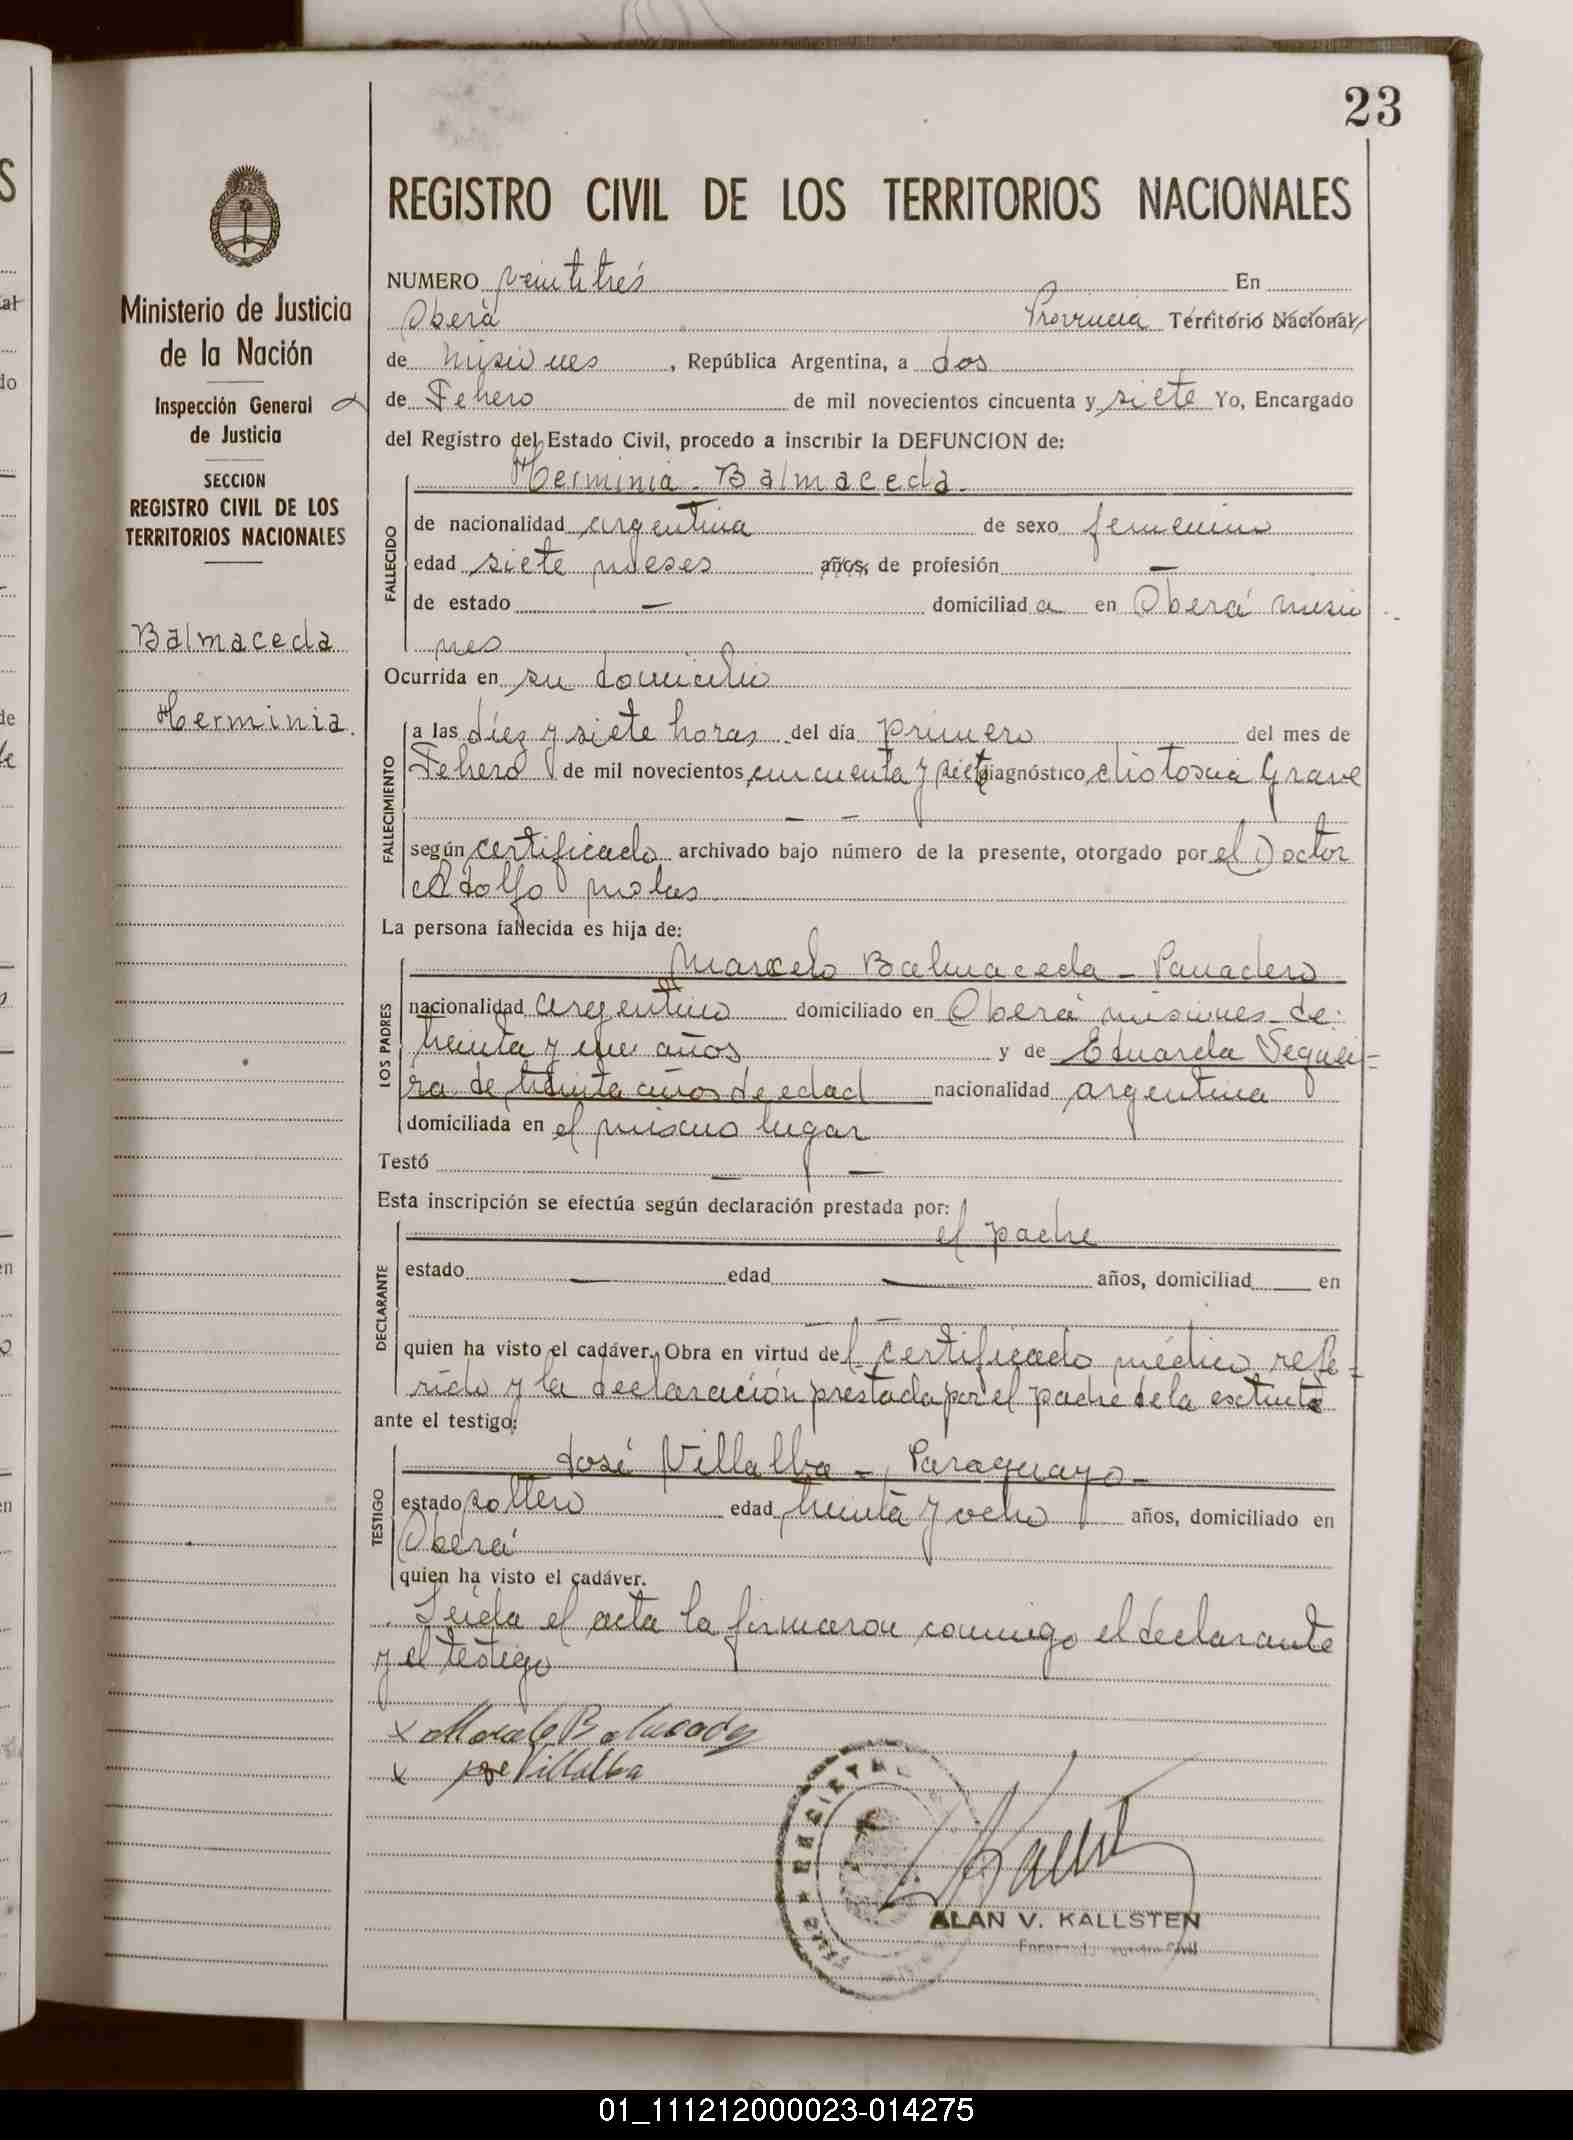 23
REGISTRO CIVIL DE LOS TERRITORIOS NACIONALES
Ministerio de Justicia
de la Nación
Inspección General
de Justicia
SECCION
REGISTRO CIVIL DE LOS
TERRITORIOS NACIONALES
Balmaceda
Herminia.
NUMERO veintitrés En
Oberá Provincia Territorio Nacional
de Misiones, República Argentina, a dos
de Febrero de mil novecientos cincuenta y siete Yo, Encargado
del Registro del Estado Civil, procedo a inscribir la DEFUNCION de:
Herminia Balmaceda.
FALLECIDO
de nacionalidad argentina de sexo femenino
edad siete meses años, de profesión —
de estado — domiciliada en Oberá Misio
nes
Ocurrida en su domicilio
FALLECIMIENTO
a las diez y siete horas del día primero del mes de
Febrero de mil novecientos cincuenta y siete diagnóstico Grave
— —
según certificado archivado bajo número de la presente, otorgado por el Doctor
Adolfo
La persona fallecida es hija de:
LOS PADRES
Marcelo Balmaceda — Panadero
nacionalidad argentino domiciliado en Oberá Misiones de
treinta y un años y de Eduarda Sequei=
ra de treinta años de edad nacionalidad argentina
domiciliada en el mismo lugar
Testó — —
Esta inscripción se efectúa según declaración prestada por:
el padre
DECLARANTE
estado — edad — años, domiciliad en
— —
quien ha visto el cadáver. Obra en virtud del certificado médico refe=
rido y la declaración prestada por el padre de la extinta
ante el testigo:
TESTIGO
José Villalba — Paraguayo —
estado soltero edad treinta y ocho años, domiciliado en
Oberá
quien ha visto el cadáver.
Leída el acta la firmaron conmigo el declarante
y el testigo
x Marcelo Balmaceda
x Jose Villalba
ALAN V. KALLSTEN
01_111212000023-014275